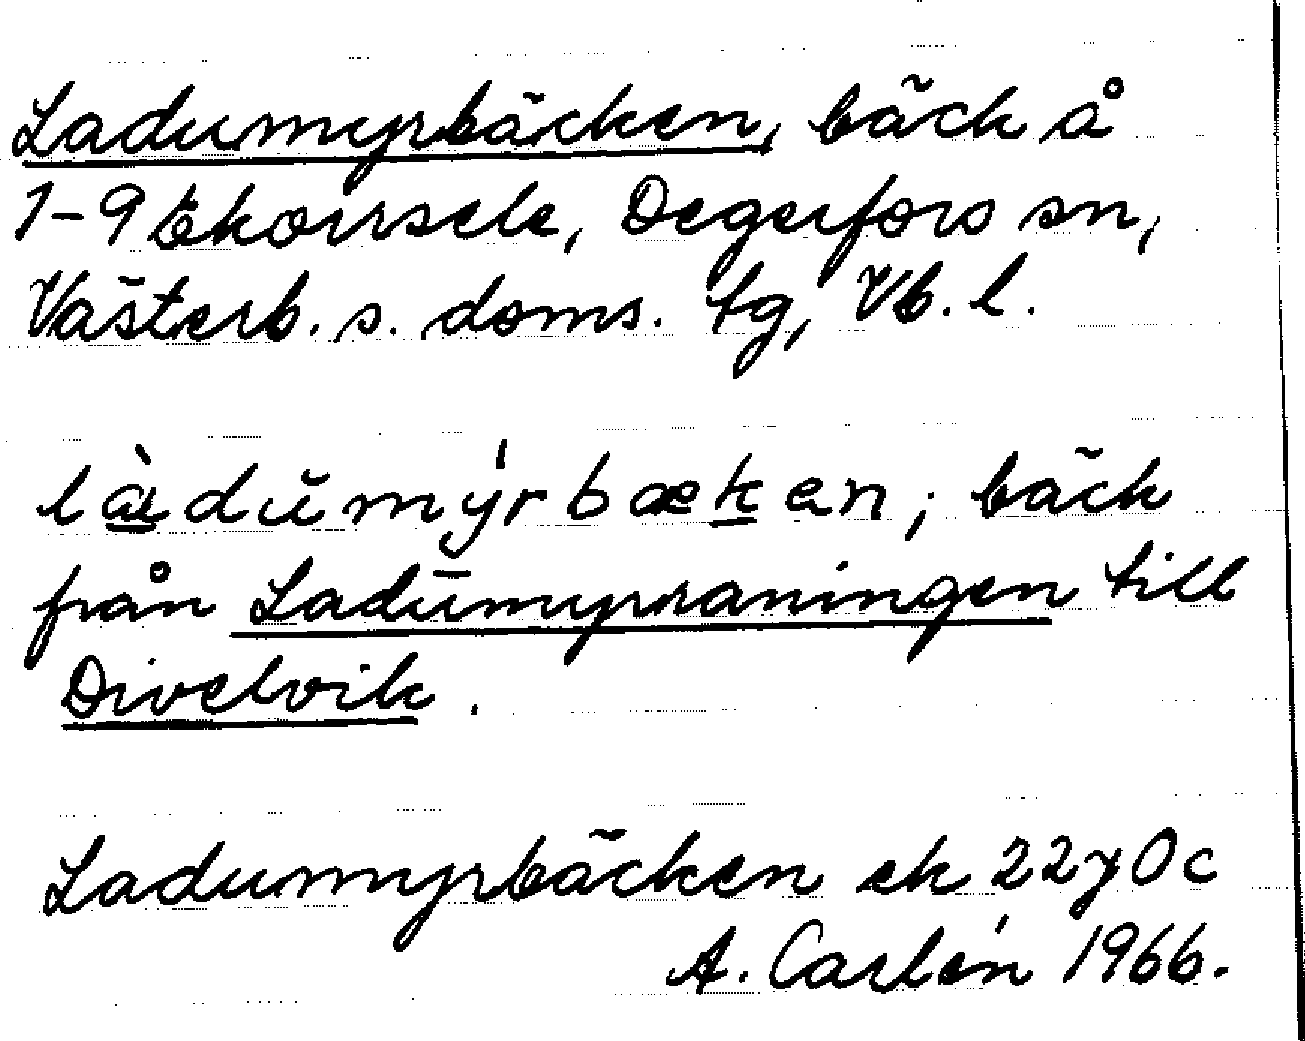 Ladumyrbäcken, bäck å
1-9 Ekorrsele, Degerfors sn,
Västerb. s. doms. tg, Vb. l.
làdŭmy̍rbækan; bäck
från Ladumyrraningen till
Divelvik.
Ladumyrbäcken ek 22y0c
A. Carlén 1966.